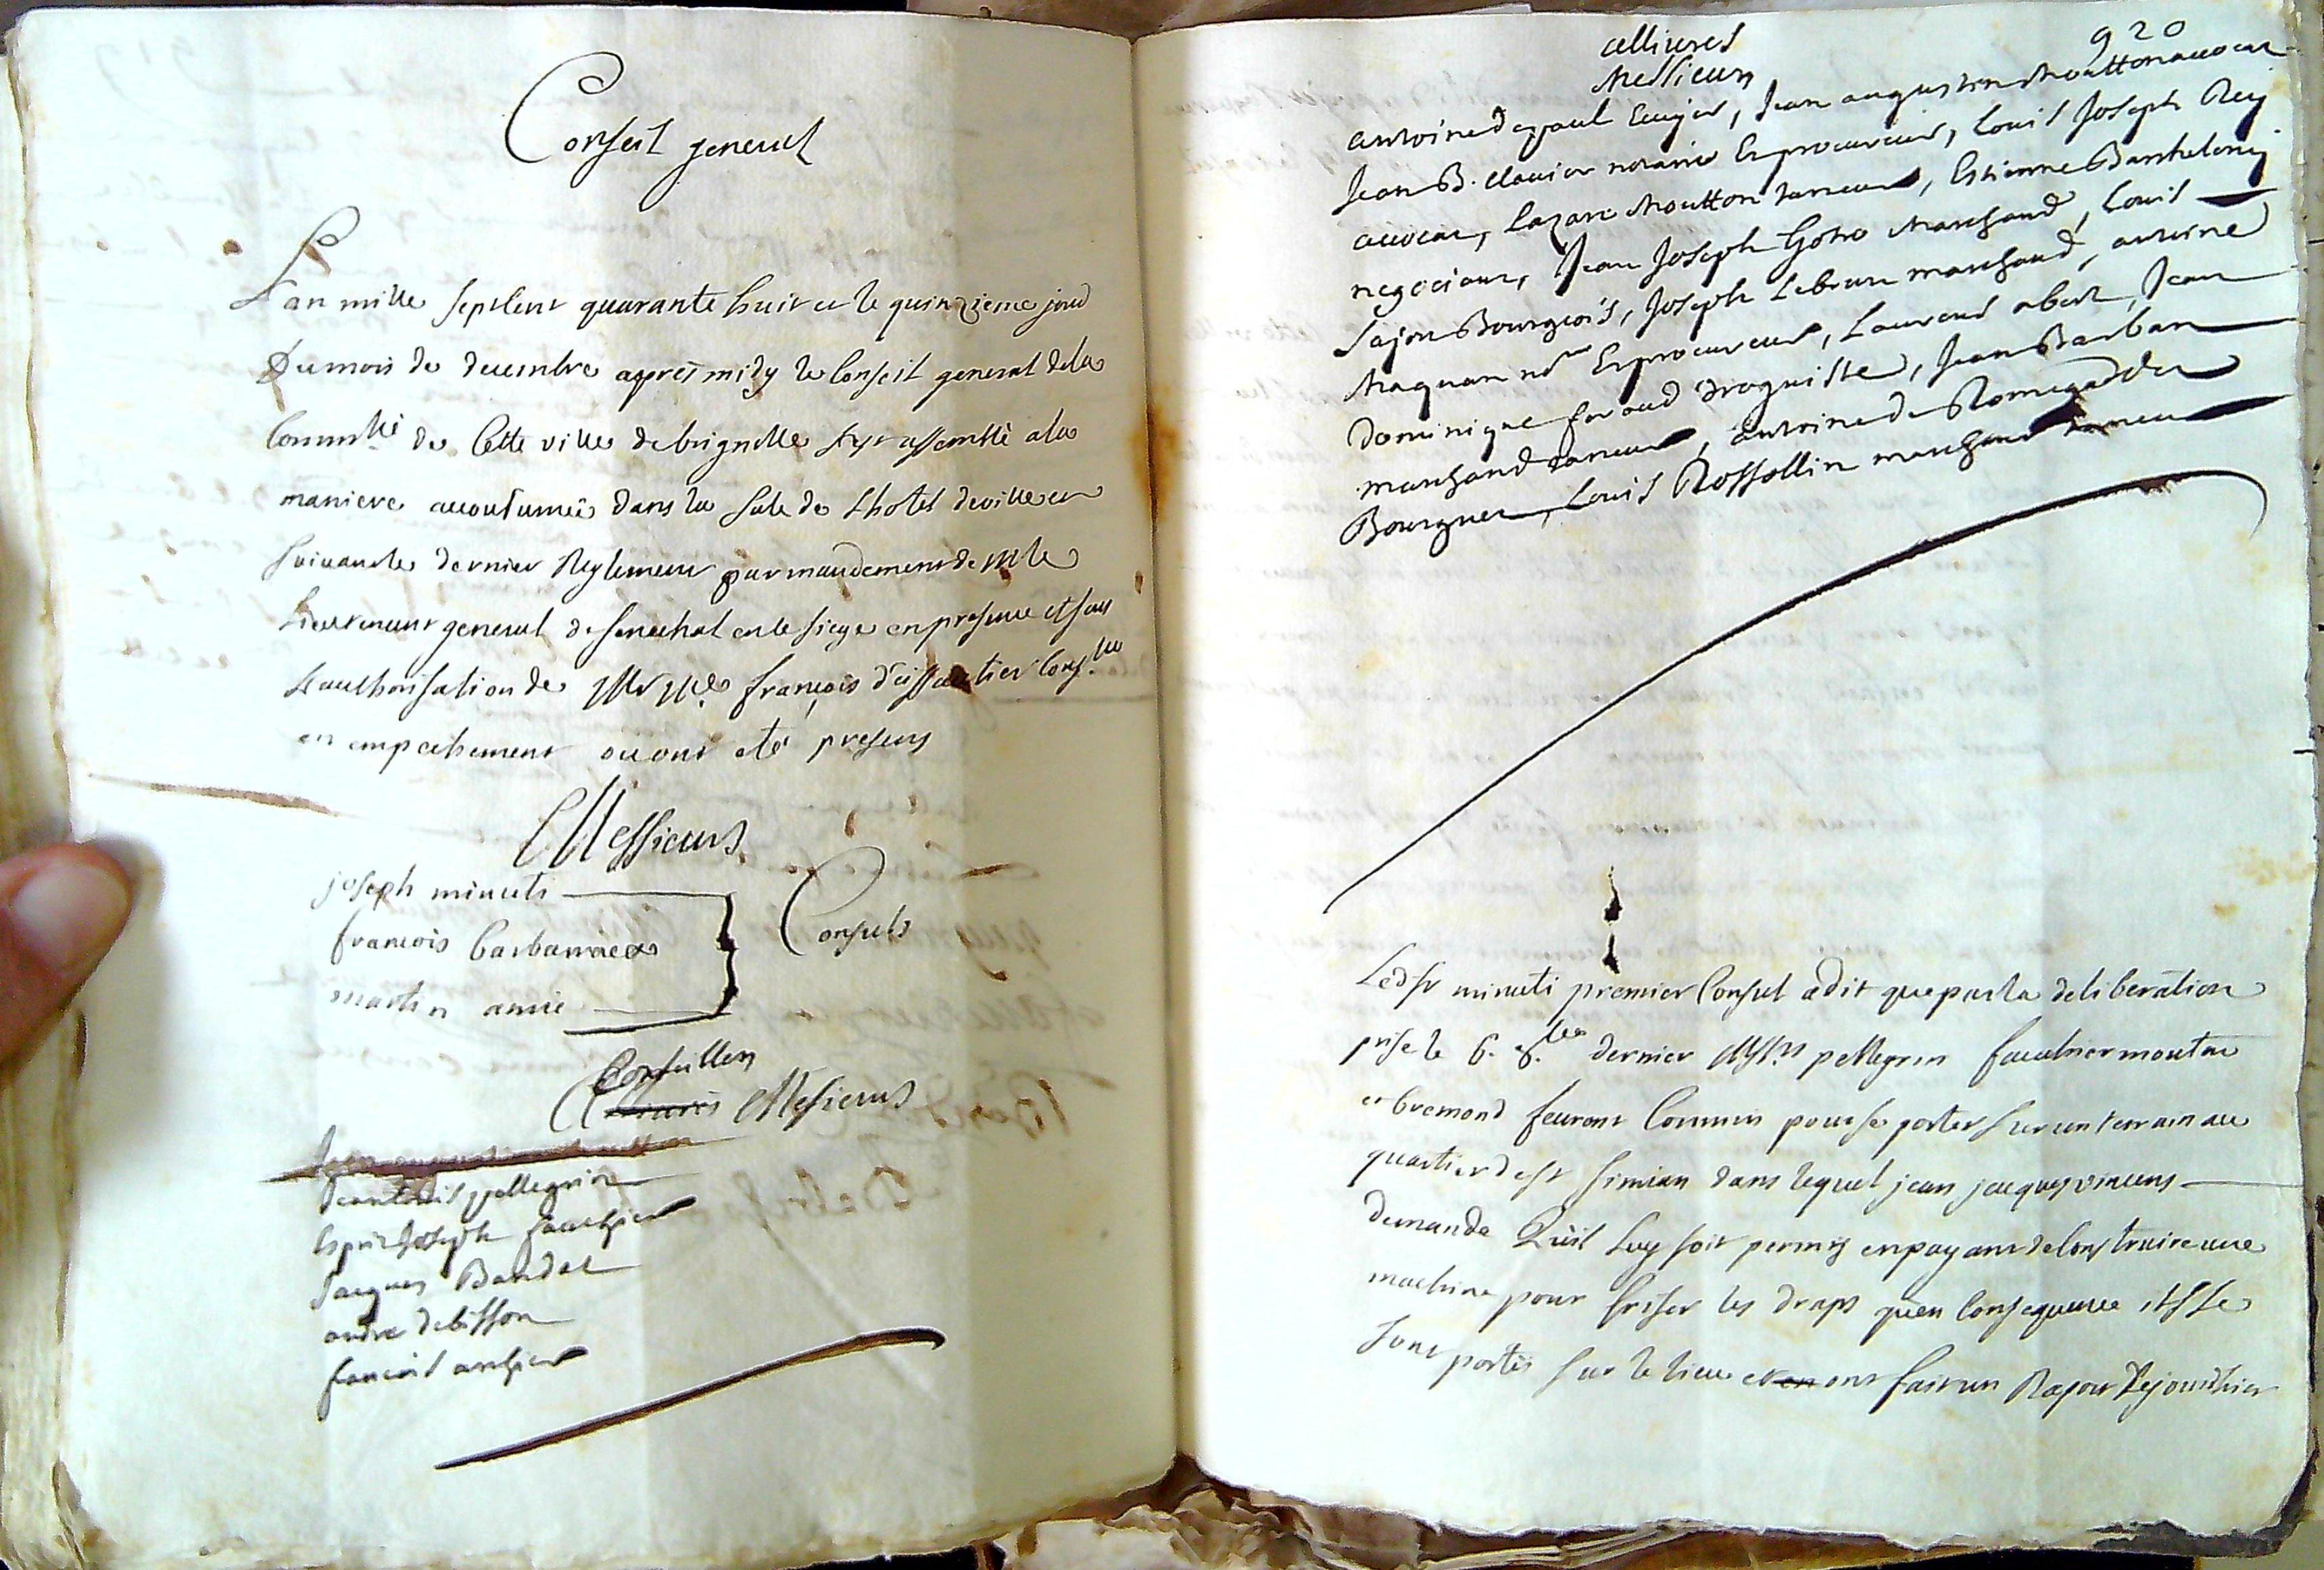 Conseil general
L'an mille sept Cent quarante huit et le quinzieme jour
du mois de decembre apres midy le Conseil general de la
Communté de Cette ville de brignolle s'est assemblé a la
maniere accoutumée dans la sale de L'hotel de ville et
suivant le dernier Reglement par mandement de Mr le
Lieutenant general de senechal en le siege en presence et sous
L'authorisation de Mr Me françois
en empechement ou ont eté presens
Messieurs
joseph minuti
francois barbarroux
martin amic
Consuls
Conseillers
Messieurs
Jean Louis pellegrin
Esprit Joseph fauchier
Jacques Baudet
andre debisson
francois archier
920
Messieurs
antoine de paul Ecuyer, Jean augustin Moutton avocat
Jean B. clavier notaire Et procureur, Louis Joseph Rey
avocat, Lazare Moutton tanneur, Estienne Barthelemy
negociant, Jean Joseph Marchand, Louis
Sajou Bourgeois, Joseph Lebrun marchand, antoine
Maquan nre Et procureur, Laurens abert, Jean
Dominique feraud droguiste, Jean Barban
marchand taneur, antoine de
Bourguet, Louis Rossollin marchand
Led sr minuti premier Consul a dit que par la deliberation
prise le 6. 8.bre dernier MMrs pellegrin fauchier mouton
et bremond feurent Commis pour se porter sur un terrain au
quartier de st simian dans lequel jean jacques vincens
demande Quil Luy soit permis en payant de Construire une
machine pour friser les draps qu'en Consequence ils se
sont portés sur le lieu et en ont fait un Raport Le jourdhier